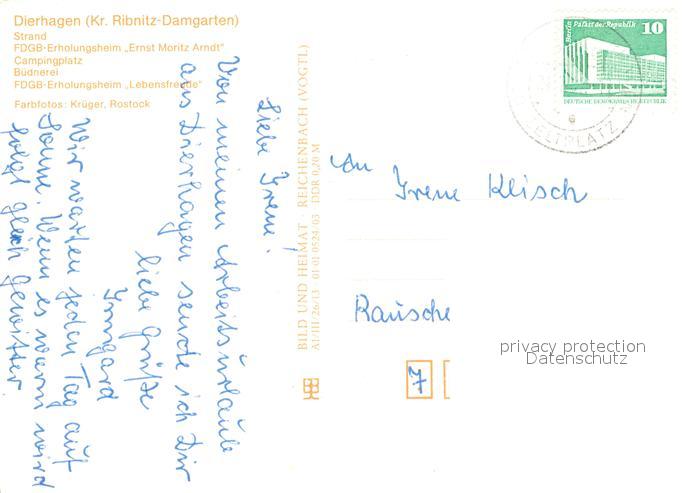 Dierhagen (Kr. Ribnitz-Damgarten)
Strand
FDGB-Erholungsheim „Ernst Moritz Arndt"
Campingplatz
Büdnerei
FDGB-Erholungsheim „Lebensfreude"
Farbfotos: Krüger, Rostock
Liebe Irene!
Von meinen Arbeitsurlaub
aus Dierhagen sende ich Dir
liebe Grüße
Irmgard
Wir warten jeden Tag auf
Sonne. Wenn es warm wird
folgt gleich Gewitter
BILD UND HEIMAT · REICHENBACH (VOGTL)
A1/III/26/13 01 01 0524/03 DDR 0,20 M
Berlin Palast der Republik
10
DEUTSCHE DEMOKRATISCHE REPUBLIK
ELTPLATZ
e
An
Irene Klisch
Rausche
7
privacy protection
Datenschutz